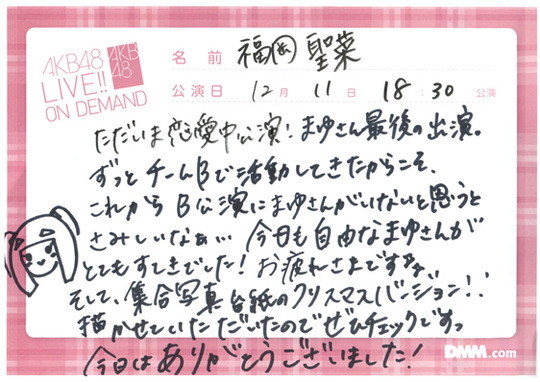 AKB48
LIVE!!
ON DEMAND
AKB
48
名前 福岡 聖菜
公演日 12月 11日 18:30 公演
ただいま恋愛中公演!まゆさん最後の出演。
ずっとチームBで活動してきたからこそ、
これからB公演にまゆさんがいないと思うと
さみしいなぁ… 今日も自由なまゆさんが
とてもすてきでした!お疲れさまです
そして、集合写真台紙のクリスマスバージョン!!
描かせていただいたのでぜひチェックですっ
今日はありがとうございました!
DMM.com